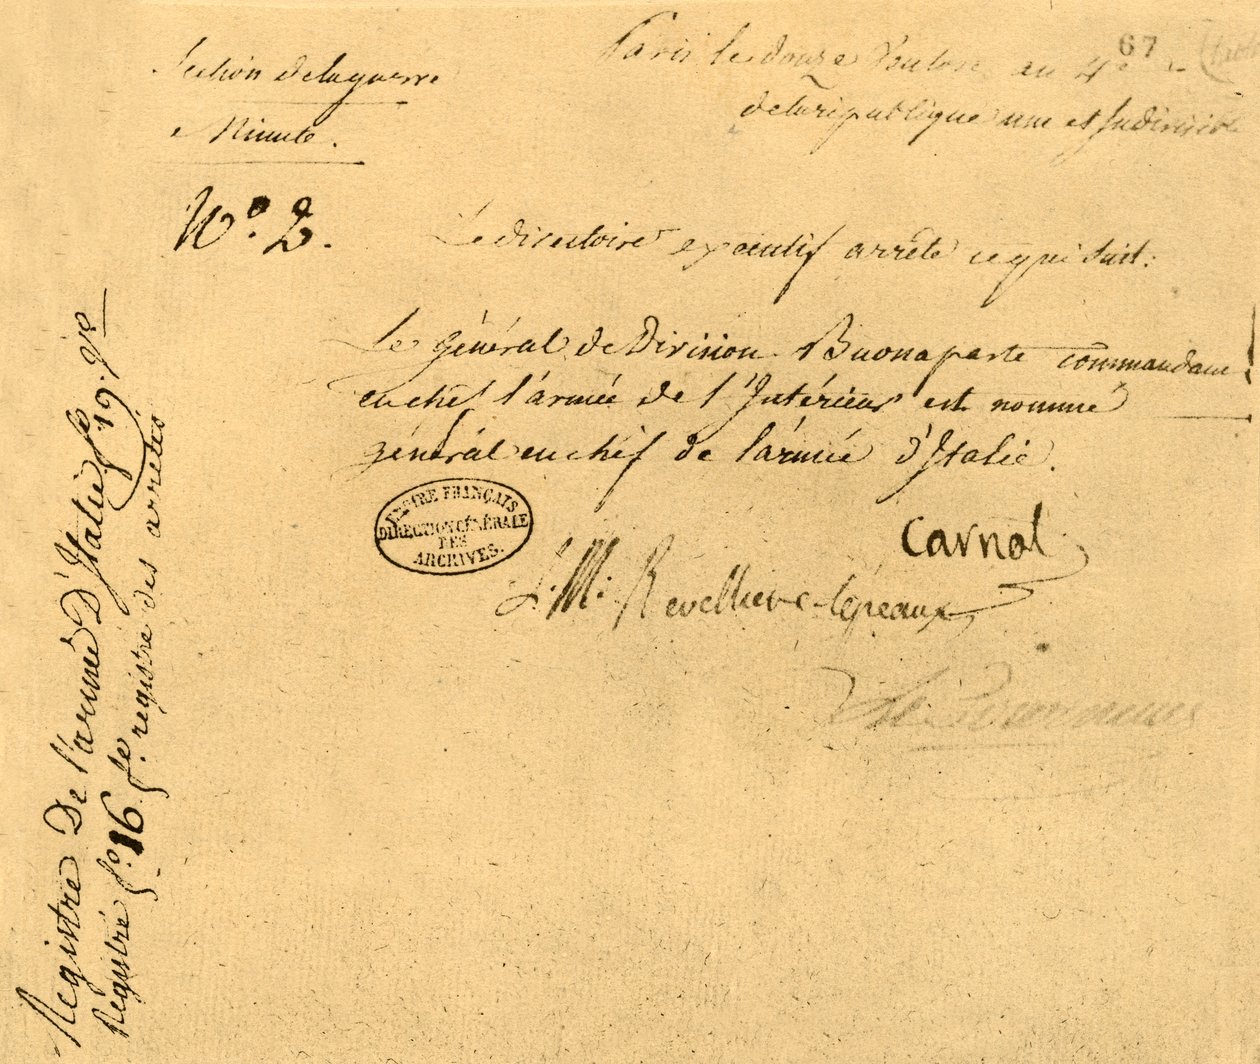 Section de la guerre
Minute.
N° 2.
67
Paris le douze Ventose an 4e
de la république une et Indivisible
Le directoire exécutif arrête ce qui suit:
Le général de Division Buonaparte commandant
en chef l'armée de l'Intérieur est nommé
général en chef de l'armée d'Italie.
EMPIRE FRANÇAIS
DIRECTION GÉNÉRALE
DES
ARCHIVES.
Carnot
L. M. Revelliere-lépeaux
Registre De l'armée D'Italie fo 19. Vo
Registré fo. 16 registre des arrêtés